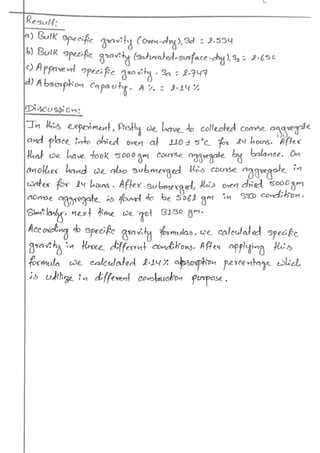 Result:
a) Bulk specific gravity (oven-dry), Sd = 2.594
b) Bulk specific gravity (saturated-surface-dry), Ss = 2.650
c) Apparent specific gravity. Sa = 2.747
d) Absorption Capacity. A% = 2.14%
Discussion:
In this experiment, firstly we have to collected coarse aggregate
and place into dried oven at 110 ± 5°c for 24 hours. After
that we have took 5000gm course aggregate by balance. On
another hand we also submerged this course aggregate in
water for 24 hours. After submerged, this oven dried 5000gm
coarse aggregate is found to be 5062 gm in SSD condition.
Similarly, next time we got 3190 gm.
According to specific gravity formulas, we calculated specific
gravity in three different conditions. After applying this
formula we calculated 2.14% absorption percentage which
is utilize in different construction purpose.